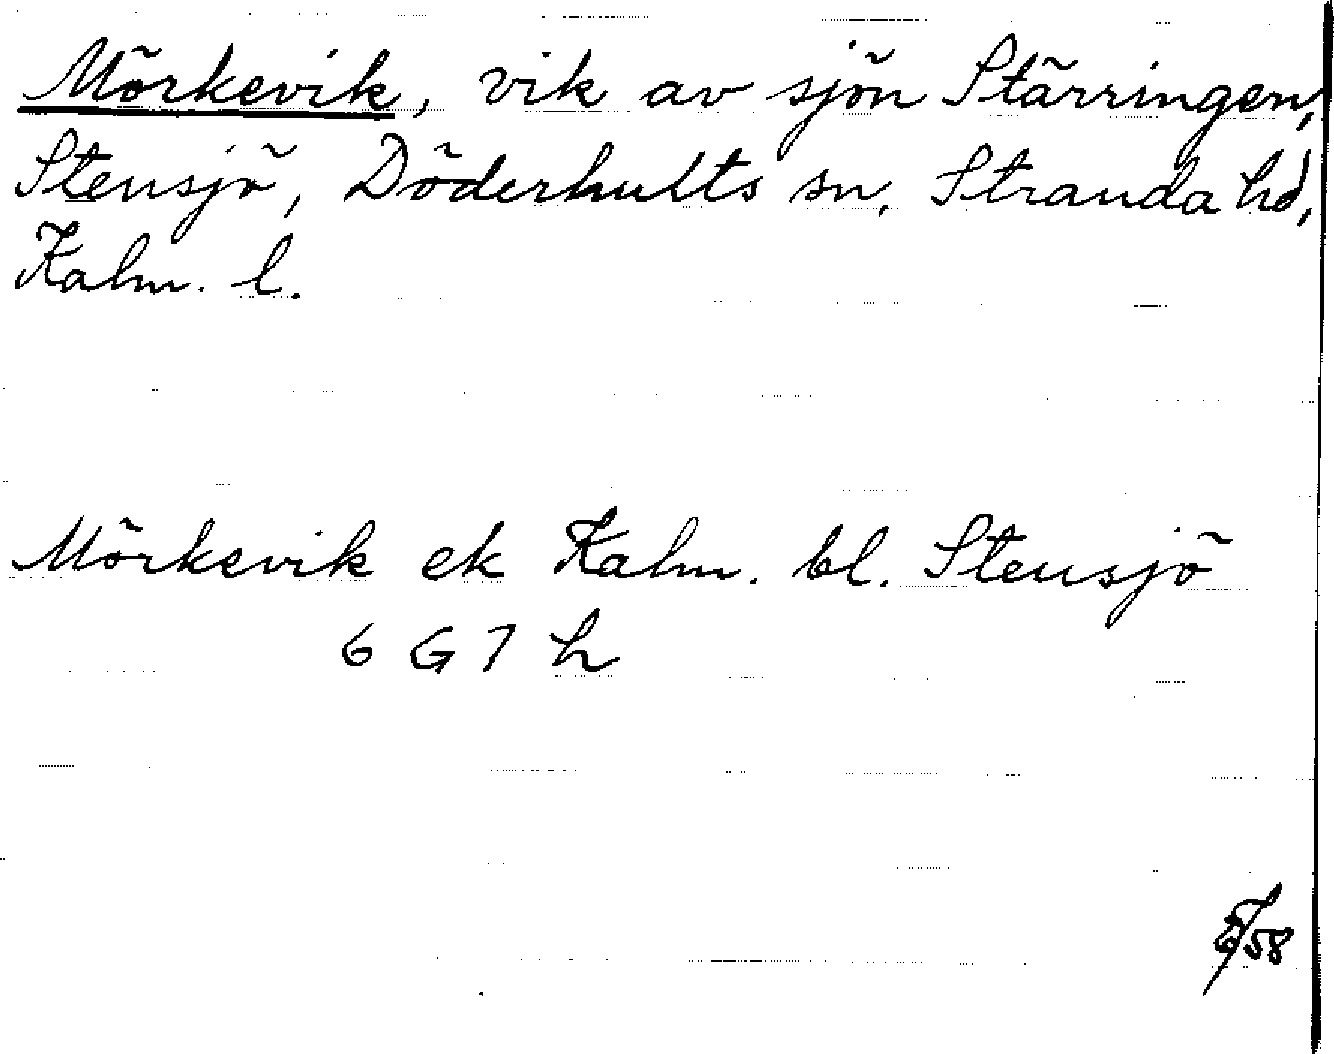 Mörkevik, vik av sjön Stärringen,
Stensjö, Döderhults sn, Stranda hd,
Kalm. l.
Mörkevik ek Kalm. bl. Stensjö
6 G 7 h
58